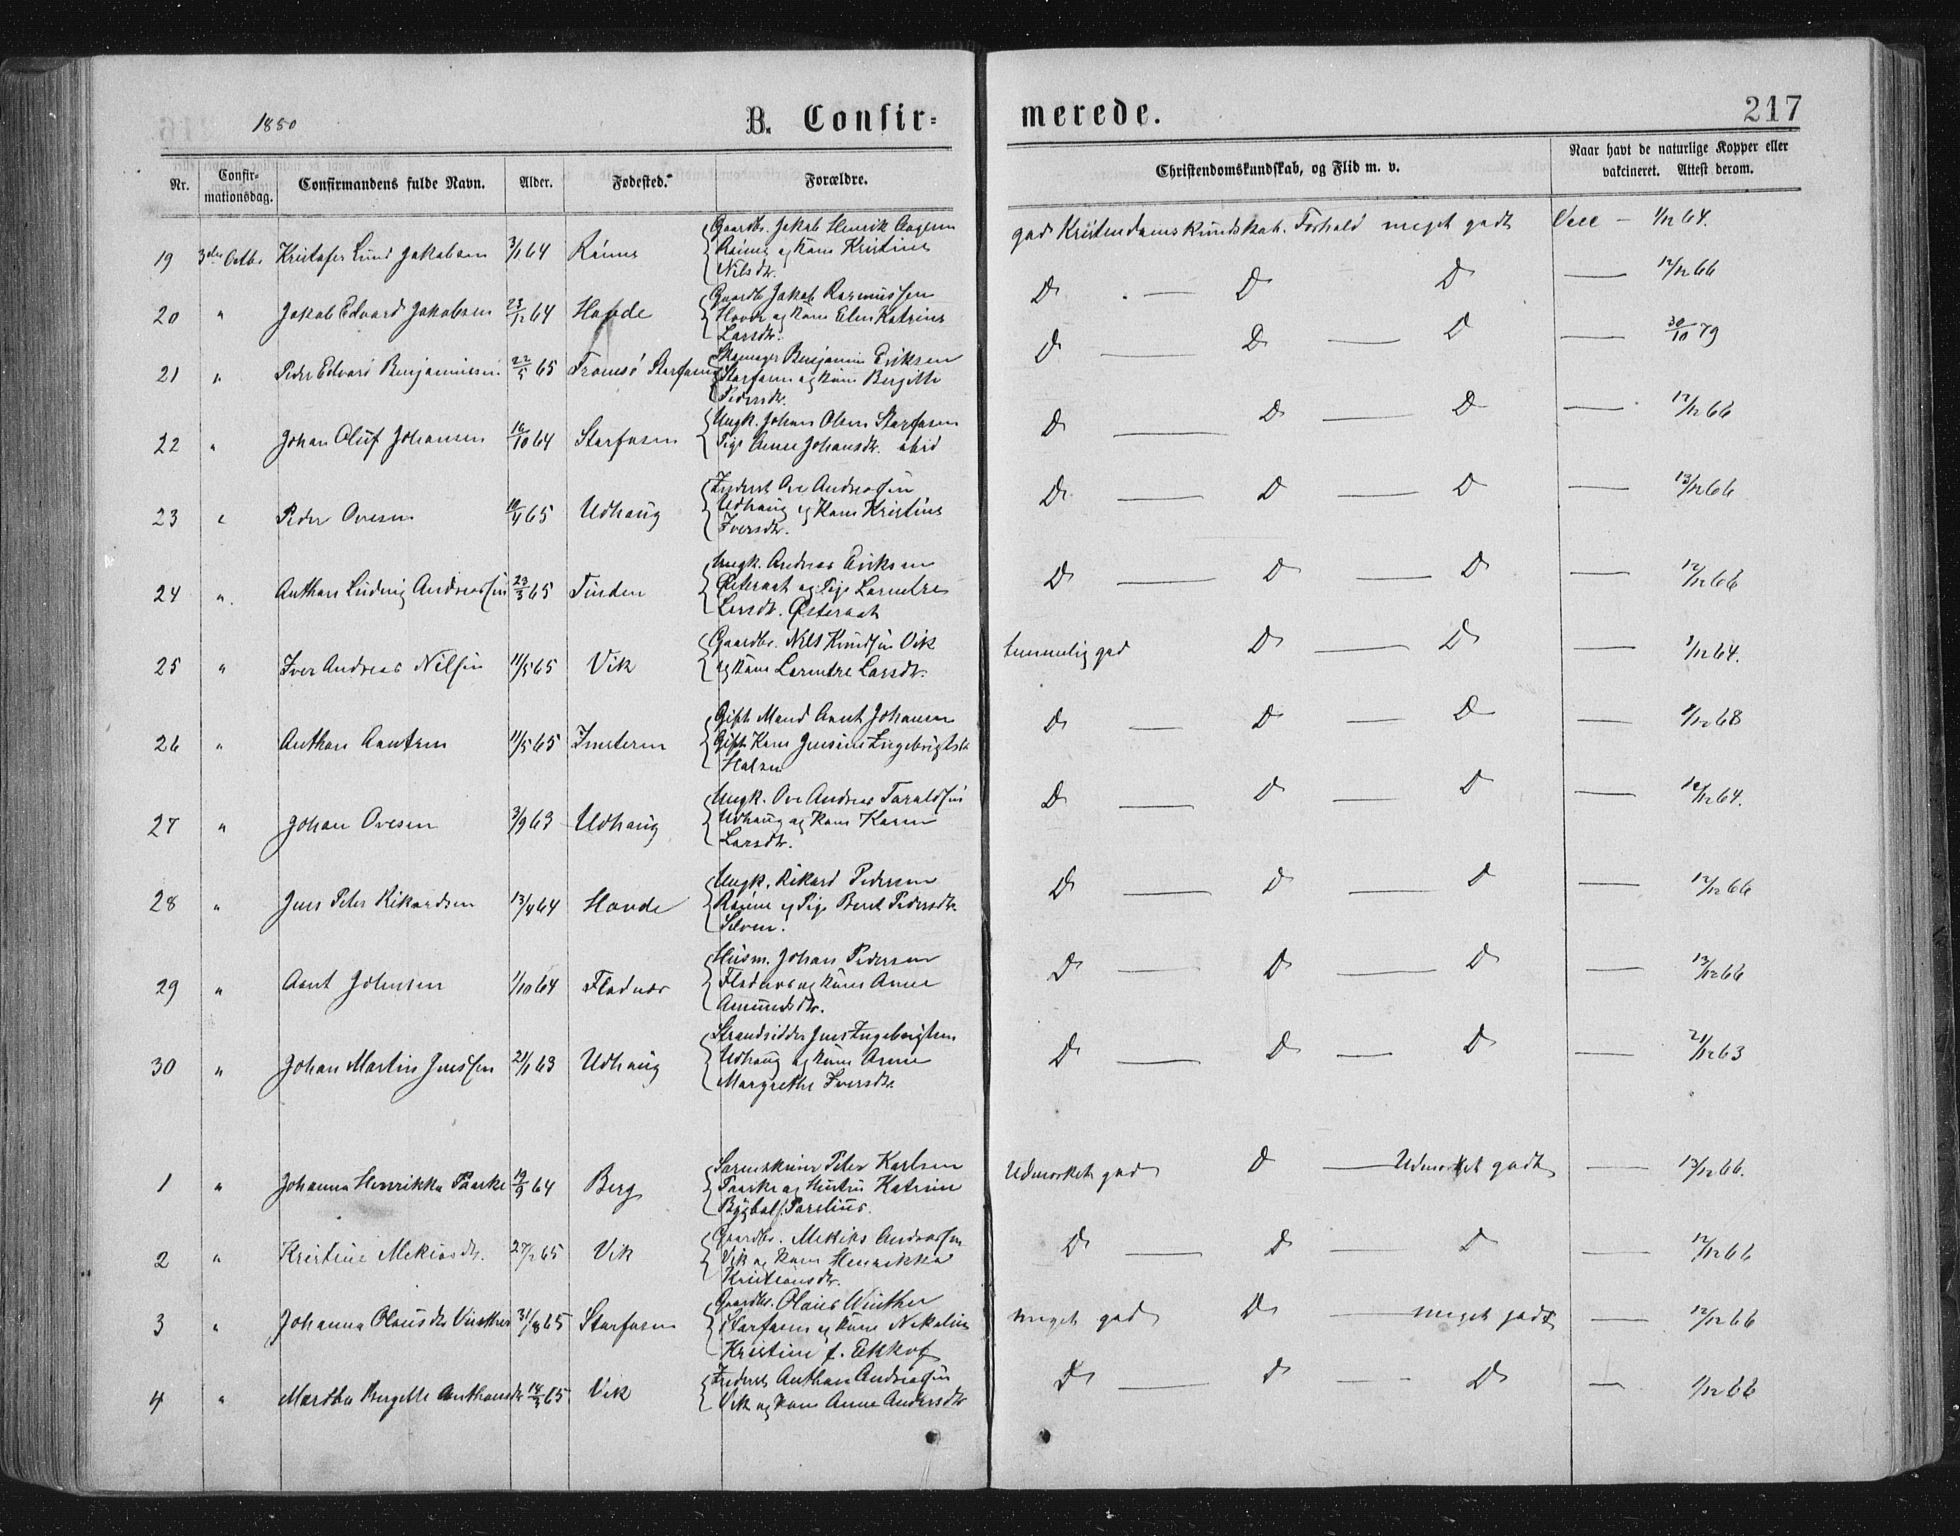 1850
B. Confir-
merede.
217
Nr.
Confir-
mationsdag.
Confirmandens fulde Navn.
Alder.
Fødested.
Forældre.
Christendomskundskab, og Flid m. v.
Naar havt de naturlige Kopper eller
vakcineret. Attest derom.
19 3die Octbr Kristofer Lund Jakobsen 3/1 64 Raine
Gaardbr. Jakob Henrik
Raine og Kone Kristine
Nilsdtr.
god Kristendomskundskab. Forhold meget godt
1/12 64.
20 " Jakob Edvard Jakobsen 23/12 64 Hovde
Gaardb Jakob Rasmussen
Hovde og Kone Elen Katrine
Larsdtr.
D — D D — 12/12 66
21 " Peder Edvard Benjaminsen 22/5 65 Tromsø Storfosen
Benjamin Eriksen
Storfosen og Kone Bergitte
Pedersdtr.
D — D — D — 30/10 79
22 " Johan Oluf Johansen 16/10 64 Storfosen
Ungk. Johan Olsen Storfosen
Pige Anne Johansdtr. ibid
D — D — D — 12/12 66
23 " Peder Ovesen 10/4 65 Udhaug
Inderst Ove Andreassen
Udhaug og Kone Kristine
Iversdtr.
D — D — D — 13/12 66
24 " Anthon Ludvig Andreassen 23/3 65 Tinden
Ungk. Andreas Eriksen
Østeraat og Pige Lorentze
Larsdtr. Østeraat
D — D — D — 12/12 66
25 " Iver Andreas Nilsen 11/5 65 Vik
Gaardbr. Nils Knudsen Vik
og Kone Lorentze Larsdtr.
temmelig god D — D — 1/12 64.
26 " Anthon Arntsen 11/5 65
Gift Mand Arnt Johansen
Gift Kone Jensine Ingebrigtsdtr
Halsen
D — D — D — 68
27 " Johan Ovesen 3/9 63 Udhaug
Ungk. Ove Andreas Taraldsen
Udhaug og Kone Karen
Larsdtr.
D — D — D — 12/12 64.
28 " Jens Peter Rikardsen 13/4 64 Hovde
Ungk. Rikard Pedersen
Raine og Pige Beret Pedersdtr.
Selven.
D — D — D — 12/12 66
29 " Arnt Johnsen 1/10 64 Fladnes
Husm. Johan Pedersen
Fladnes og Kone Anne
Amundsdtr.
D — D — D — 13/12 66
30 " Johan Martin Jenssen 21/1 63 Udhaug
Strandsidder Jens Ingebrigtsen
Udhaug og Kone Anne
Margrethe Iversdtr.
D — D — D — 21/12 63
1 " Johanna Henrikka Paaske 19/9 64 Berg
Sorenskriver Peter Karlsen
Paaske og Hustru Katrine
f. Parelius.
Udmærket god D — Udmærket godt — 13/12 66.
2 " Kristine Mekiasdtr. 27/2 65 Vik
Gaardbr. Mekias Andreassen
Vik og Kone Henrikka
Kristiansdtr.
D — D — D — 12/12 66
3 " Johanna Olausdtr Vinther 31/8 65 Storfosen
Gaardbr. Olaus Winther
Storfosen og Kone Nikoline
Kristine f. Ekhof
meget god D — meget godt — 12/12 66
4 " Martha Bergitte Anthonsdtr 14/3 65 Vik
Inderst Anthon Andreassen
Vik og Kone Anne Andersdtr
D — D — D — 1/12 66